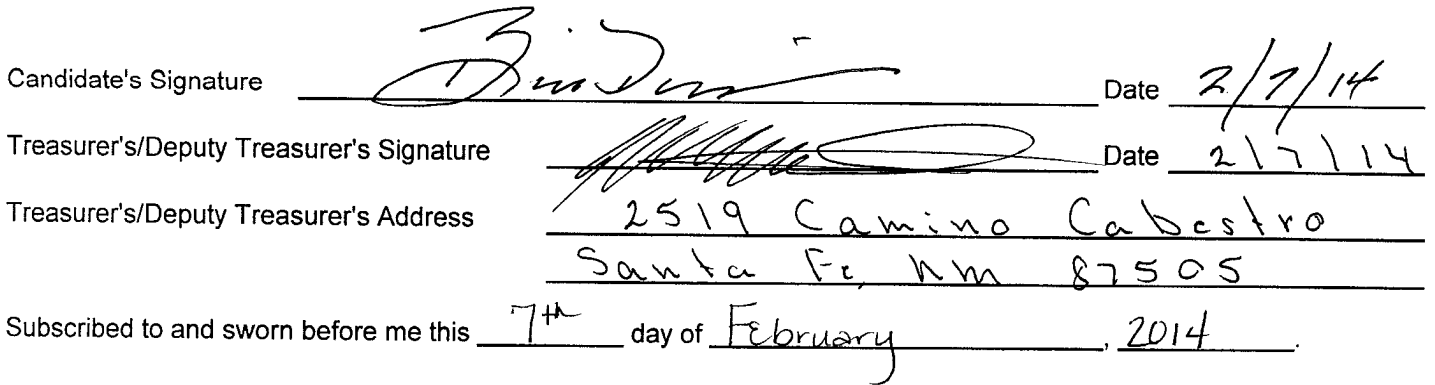 Candidate's Signature Date 2/7/14
Treasurer's/Deputy Treasurer's Signature Date 2/7/14
Treasurer's/Deputy Treasurer's Address 2519 Camino Cabestro
Santa Fe, NM 87505
Subscribed to and sworn before me this 7th day of February, 2014.